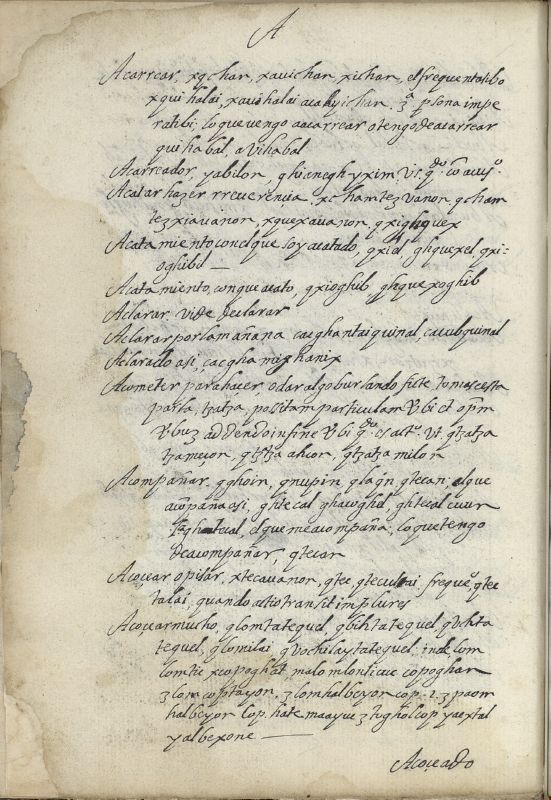 A
Acarrear, xqchan, xavichan xichan, el frequentatibo
xqui halai, xavihalai avalyichan. 3ᵃ psona impe
ratibi, lo que vengo aacarrear otengo deacarrear
quihabal, avihabal
Acarreador, yabilon, ghianegh yxim
Acatar hazer rreverencia, xchamtezvanon, qcham
tezxiavanon, xquexavanon, qxighquex
Acatamiento conel que soy acatado, qxiel, ghquexel, qxi-
oghibil —
Acatamiento, conque acato, qxioghib, ghquexoghib
Aclarar vide declarar
Aclarar por la mañana cacghantaiquinal, cacubquinal
Aclarado asi, cacgha mixhanix
Acometer para hacer, o dar algo burlando
parla, tzatza, positam particulam Vbi et
Vbuz addendo infine Vbi qᵈᵒ es actᵒ. Vt qtzatza
tzamecon, qtzatza ahcon, qtzatza milon
Acompañar, qghoin, qnupin qlaģn, qtecan; el que
acōpaña asi, ghtecal ghawghel, ghtecal
ghtecal, el que me acompaña, lo que tengo
deacompañar, qtecan
Acocear o pisar, xtecavanon, qtec qteculai. frequeᵒ. qtec
talai, quando actio transit imp lures
Acocear mucho, qlomtatequel, qbilitatequel qvchta
tequel, qlomilai, qvochilaytatequel; inde, lom
lomtic xcopoghat malo mlonticuc copoghan
3 lom coptayon. 3 lomhalbeyon cop. 2. 3 paom
halbeyon cop. hate maayuc 3 tughol cop yaextal
yalbexone —
Acoceado